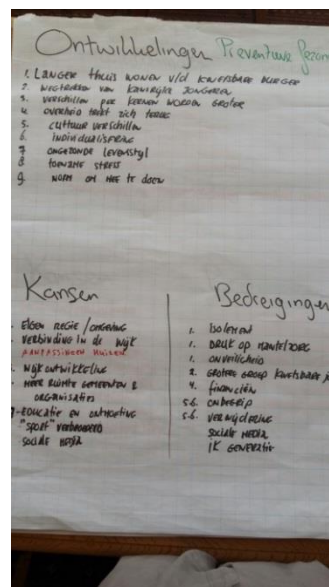 Ontwikkelingen Preventieve gezon
1. LANGER thuis wonen v/d kwetsbare burger
2. wegtrekken van kansrijke jongeren
3. verschillen per kernen worden groter
4. overheid trekt zich terug
5. cultuur verschillen
6. individualisering
7 ongezonde levensstyl
8. toename stress
9. norm om mee te doen
Kansen
EIGEN REGIE / OMGEVING
VERBINDING IN DE WIJK
AANPASSINGEN HUIZEN
Wijkontwikkeling
MEER RUIMTE GEMEENTEN &
ORGANISATIES
7-EDUCATIE EN ontmoeting
"SPORT" VERBROEDERD
SOCIALE MEDIA
Bedreigingen
1. ISOLEMENT
1. DRUK OP MANTELZORG
1. ONVEILIGHEID
2. GROTERE GROEP KWETSBARE
4. financiën
5.6. ONBEGRIP
5.6. VERWIJDERING
SOCIALE MEDIA
IK GENERATIE